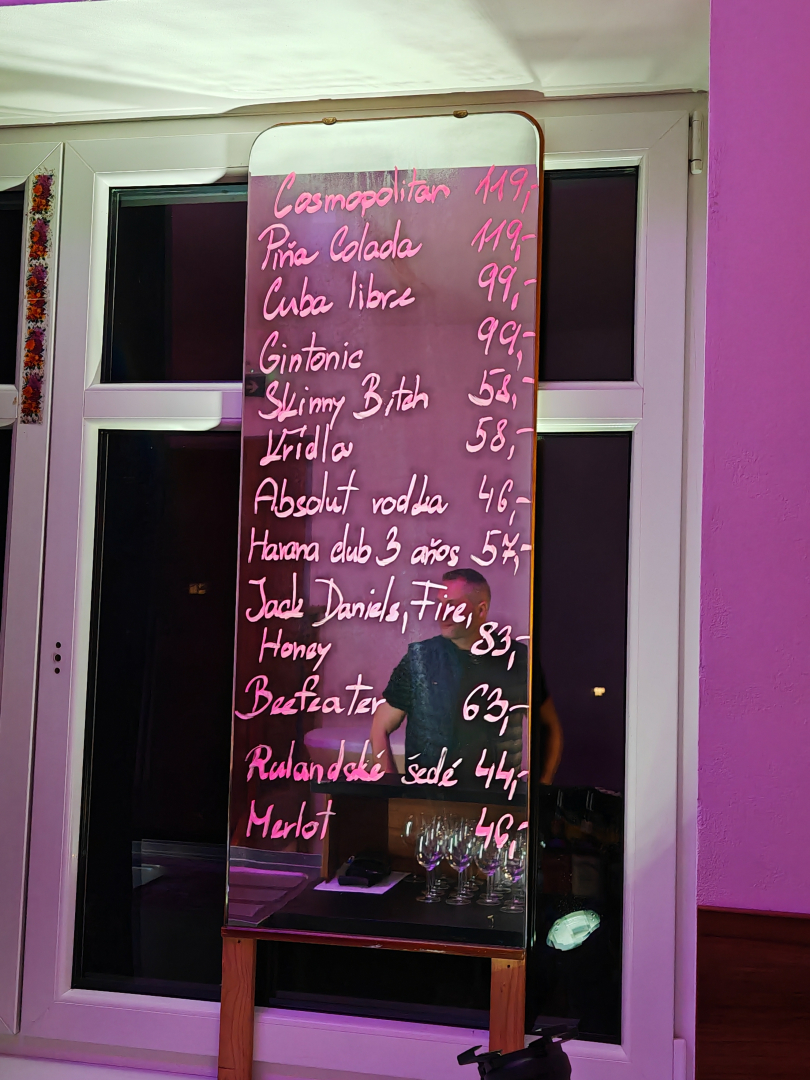 Cosmopolitan 119,-
Piňa Colada 119,-
Cuba libre 99,-
Gintonic 99,-
Skinny Bitch 58,-
Křídla 58,-
Absolut vodka 46,-
Havana club 3 aňos 57,-
Jack Daniels, Fire,
Honey 83,-
Beefeater 63,-
Rulandské šedé 44,-
Merlot 46,-